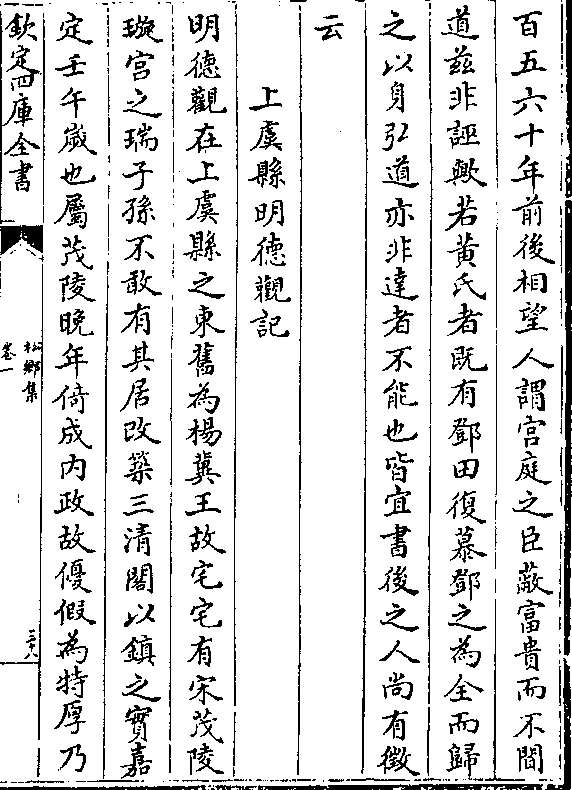 百五六十年前後相望人謂宫庭之臣蔽富貴而不聞
道兹非誣歟若黄氏者既有鄧田復慕鄧之為全而歸
之以身弘道亦非達者不能也皆宜書後之人尚有徴
云
上虞縣明德觀記
明德觀在上虞縣之東舊為楊冀王故宅宅有宋茂陵
璇宫之瑞子孫不敢有其居改築三清閣以鎮之實嘉
定壬午嵗也屬茂陵晩年倚成内政故優假為特厚乃
欽定四庫全書
松鄉集
卷一
三十八